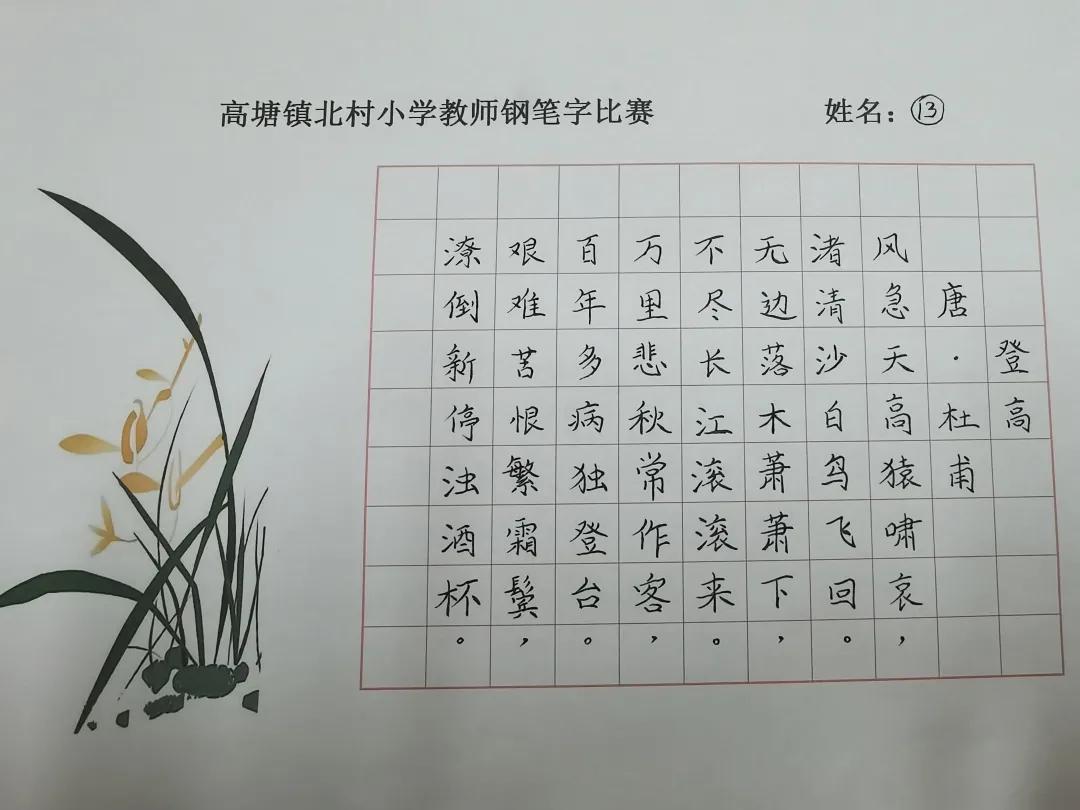 高塘镇北村小学教师钢笔字比赛
姓名：⑬
登高
唐·杜甫
风急天高猿啸哀，
渚清沙白鸟飞回。
无边落木萧萧下，
不尽长江滚滚来。
万里悲秋常作客，
百年多病独登台。
艰难苦恨繁霜鬓，
潦倒新停浊酒杯。